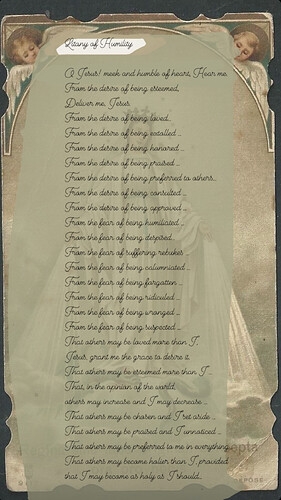 Litany of Humility
O Jesus! meek and humble of heart, Hear me.
From the desire of being esteemed,
Deliver me, Jesus.
From the desire of being loved...
From the desire of being extolled ...
From the desire of being honored ...
From the desire of being praised ...
From the desire of being preferred to others...
From the desire of being consulted ...
From the desire of being approved ...
From the fear of being humiliated ...
From the fear of being despised...
From the fear of suffering rebukes ...
From the fear of being calumniated ...
From the fear of being forgotten ...
From the fear of being ridiculed ...
From the fear of being wronged ...
From the fear of being suspected ...
That others may be loved more than I,
Jesus, grant me the grace to desire it.
That others may be esteemed more than I ...
That, in the opinion of the world,
others may increase and I may decrease ...
That others may be chosen and I set aside ...
That others may be praised and I unnoticed ...
That others may be preferred to me in everything...
That others may become holier than I, provided
that I may become as holy as I should...